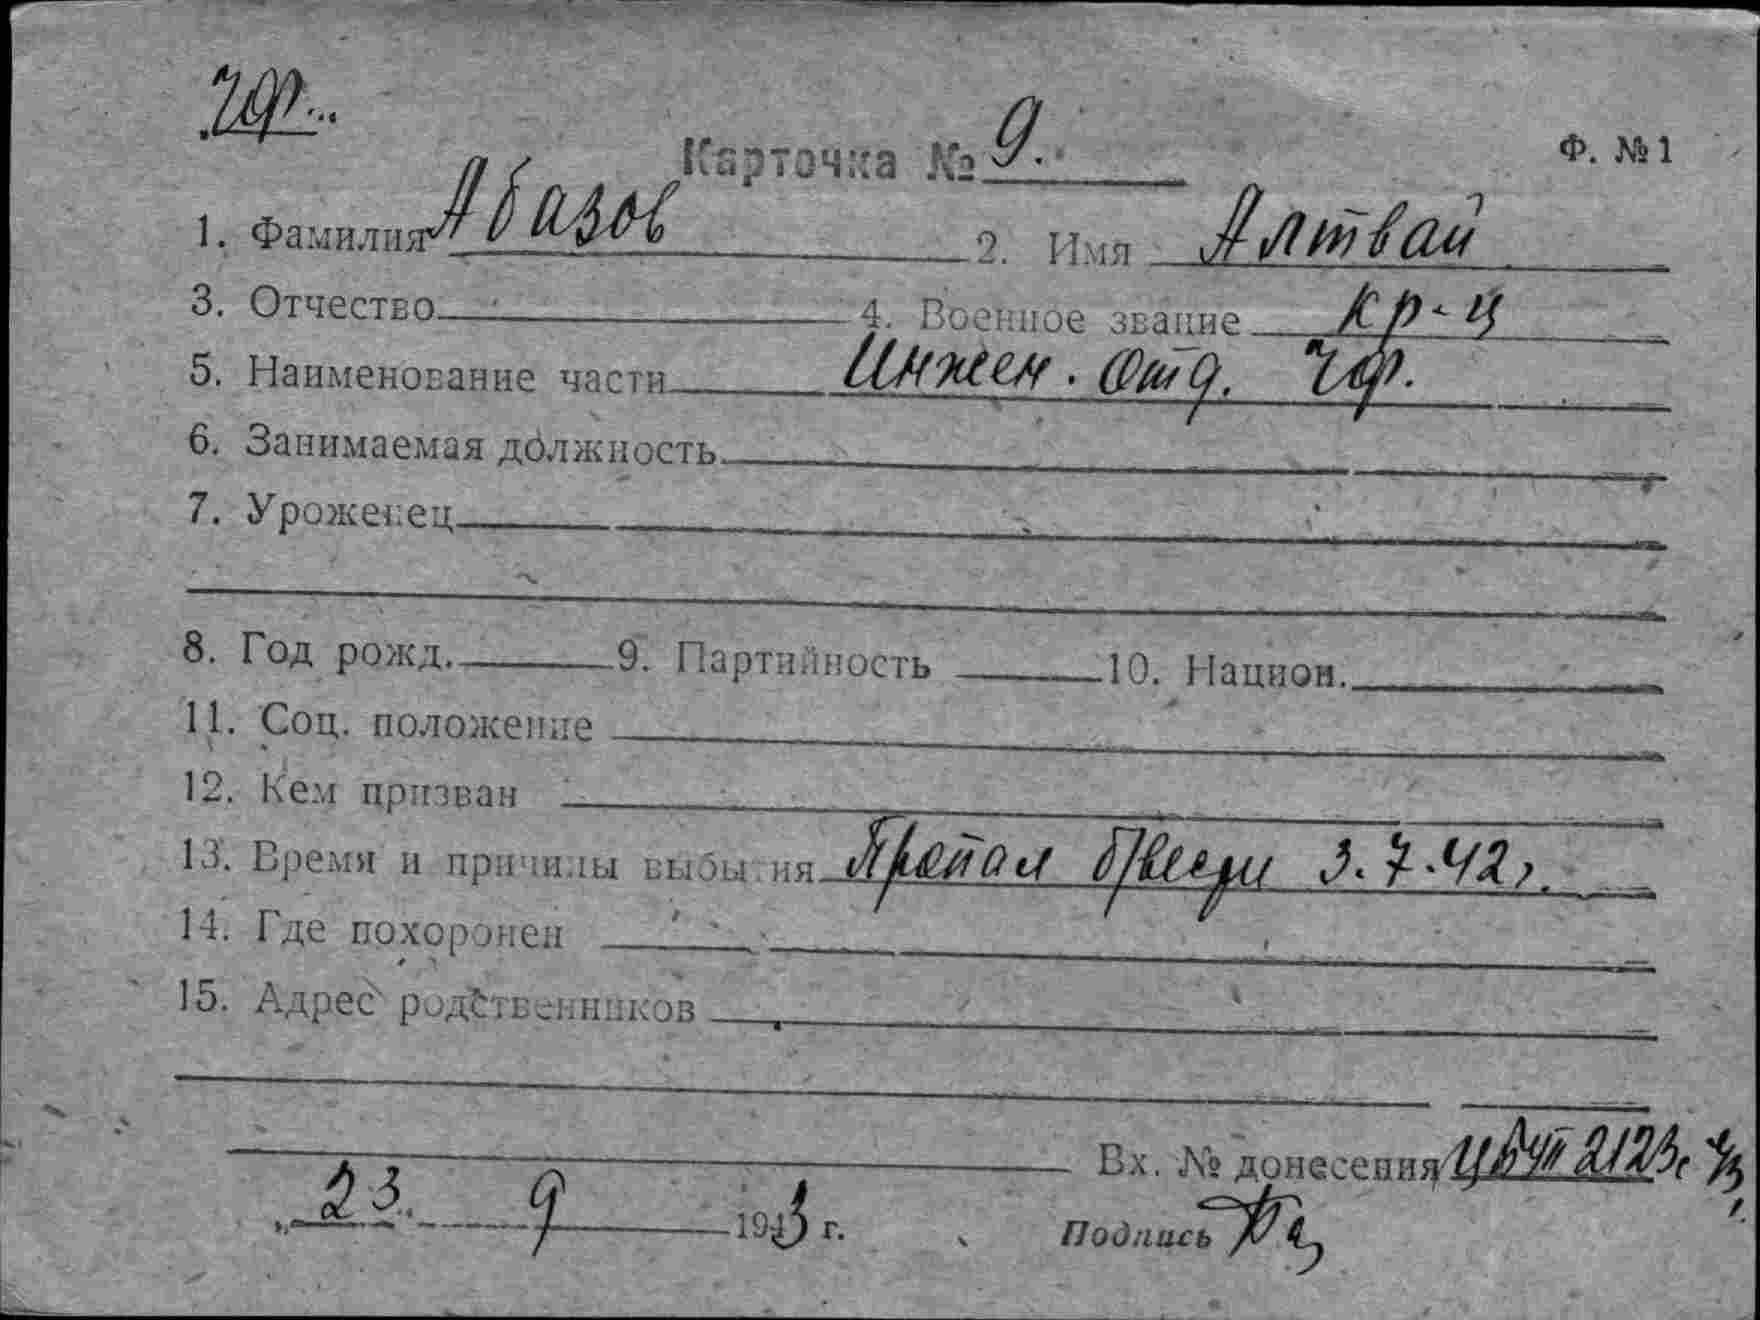 Чф.
Карточка № 9. Ф. № 1
1. Фамилия Абазов 2. Имя Алтвай
3. Отчество 4. Военное звание кр-ц
5. Наименование части Инжен. Отд. Чф.
6. Занимаемая должность
7. Уроженец
8. Год рожд. 9. Партийность 10. Национ.
11. Соц. положение
12. Кем призван
13. Время и причины выбытия Пропал 3.7.42г.
14. Где похоронен
15. Адрес родственников
Вх. № донесения 2123с
„23 9 1943 г. Подпись